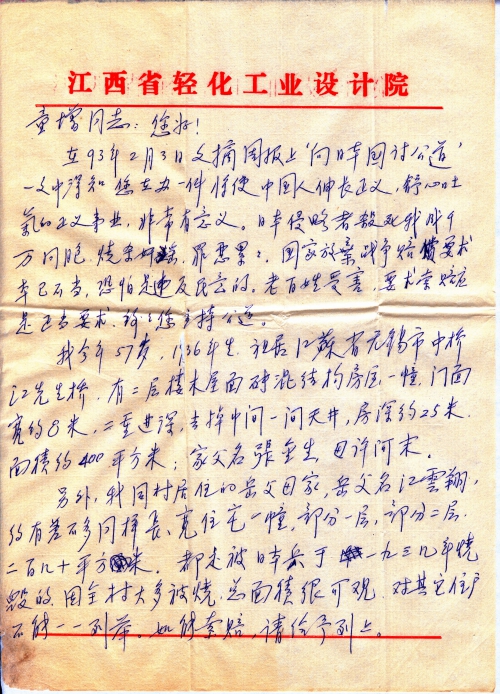 江西省轻化工业设计院
童增同志：您好！
在93年2月3日文摘周报上‘向日本国讨公道’
一文中得知您在办一件将使中国人伸长正义，舒心吐
气的正义事业，非常有意义。日本侵略者杀死我成千
万同胞，烧杀，罪恶累々。国家放弃战争赔偿要求
本已不当，恐怕是违反民意的。老百姓受害，要求索赔应
是正当要求，请您主持公道。
我今年57岁，1936年生，祖居江苏省无锡市中桥
江先生桥，有二层楼木屋面砖混结构房屋一幢，门面
宽约8米，二重进深，去掉中间一间天井，房深约25米，
面积约400平方米；家父名張金生，母许河末。
另外，我同村居住的岳父母家，岳父名江雲翔，
约有差不多同样长、宽住宅一幢，部分一层，部分二层，
二百几十平方米。都是被日本兵于一九三九年烧
毁的。因全村大多被烧，总面积很可观，对其它住户
不能一一列举。如能索赔，请给予列上。